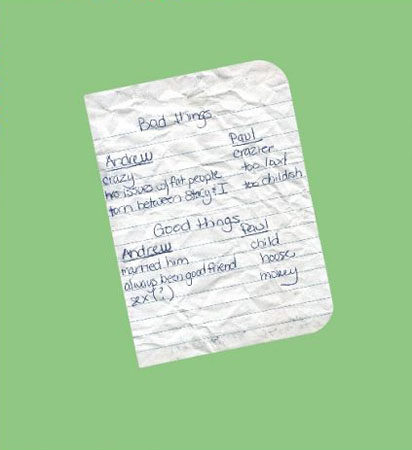 Bad things
Andrew Paul
crazy crazier
has issues w/ fat people too lost
torn between Stacy & I too childish
Good things
Andrew Paul
married him child
always been good friend house
sex (?) money